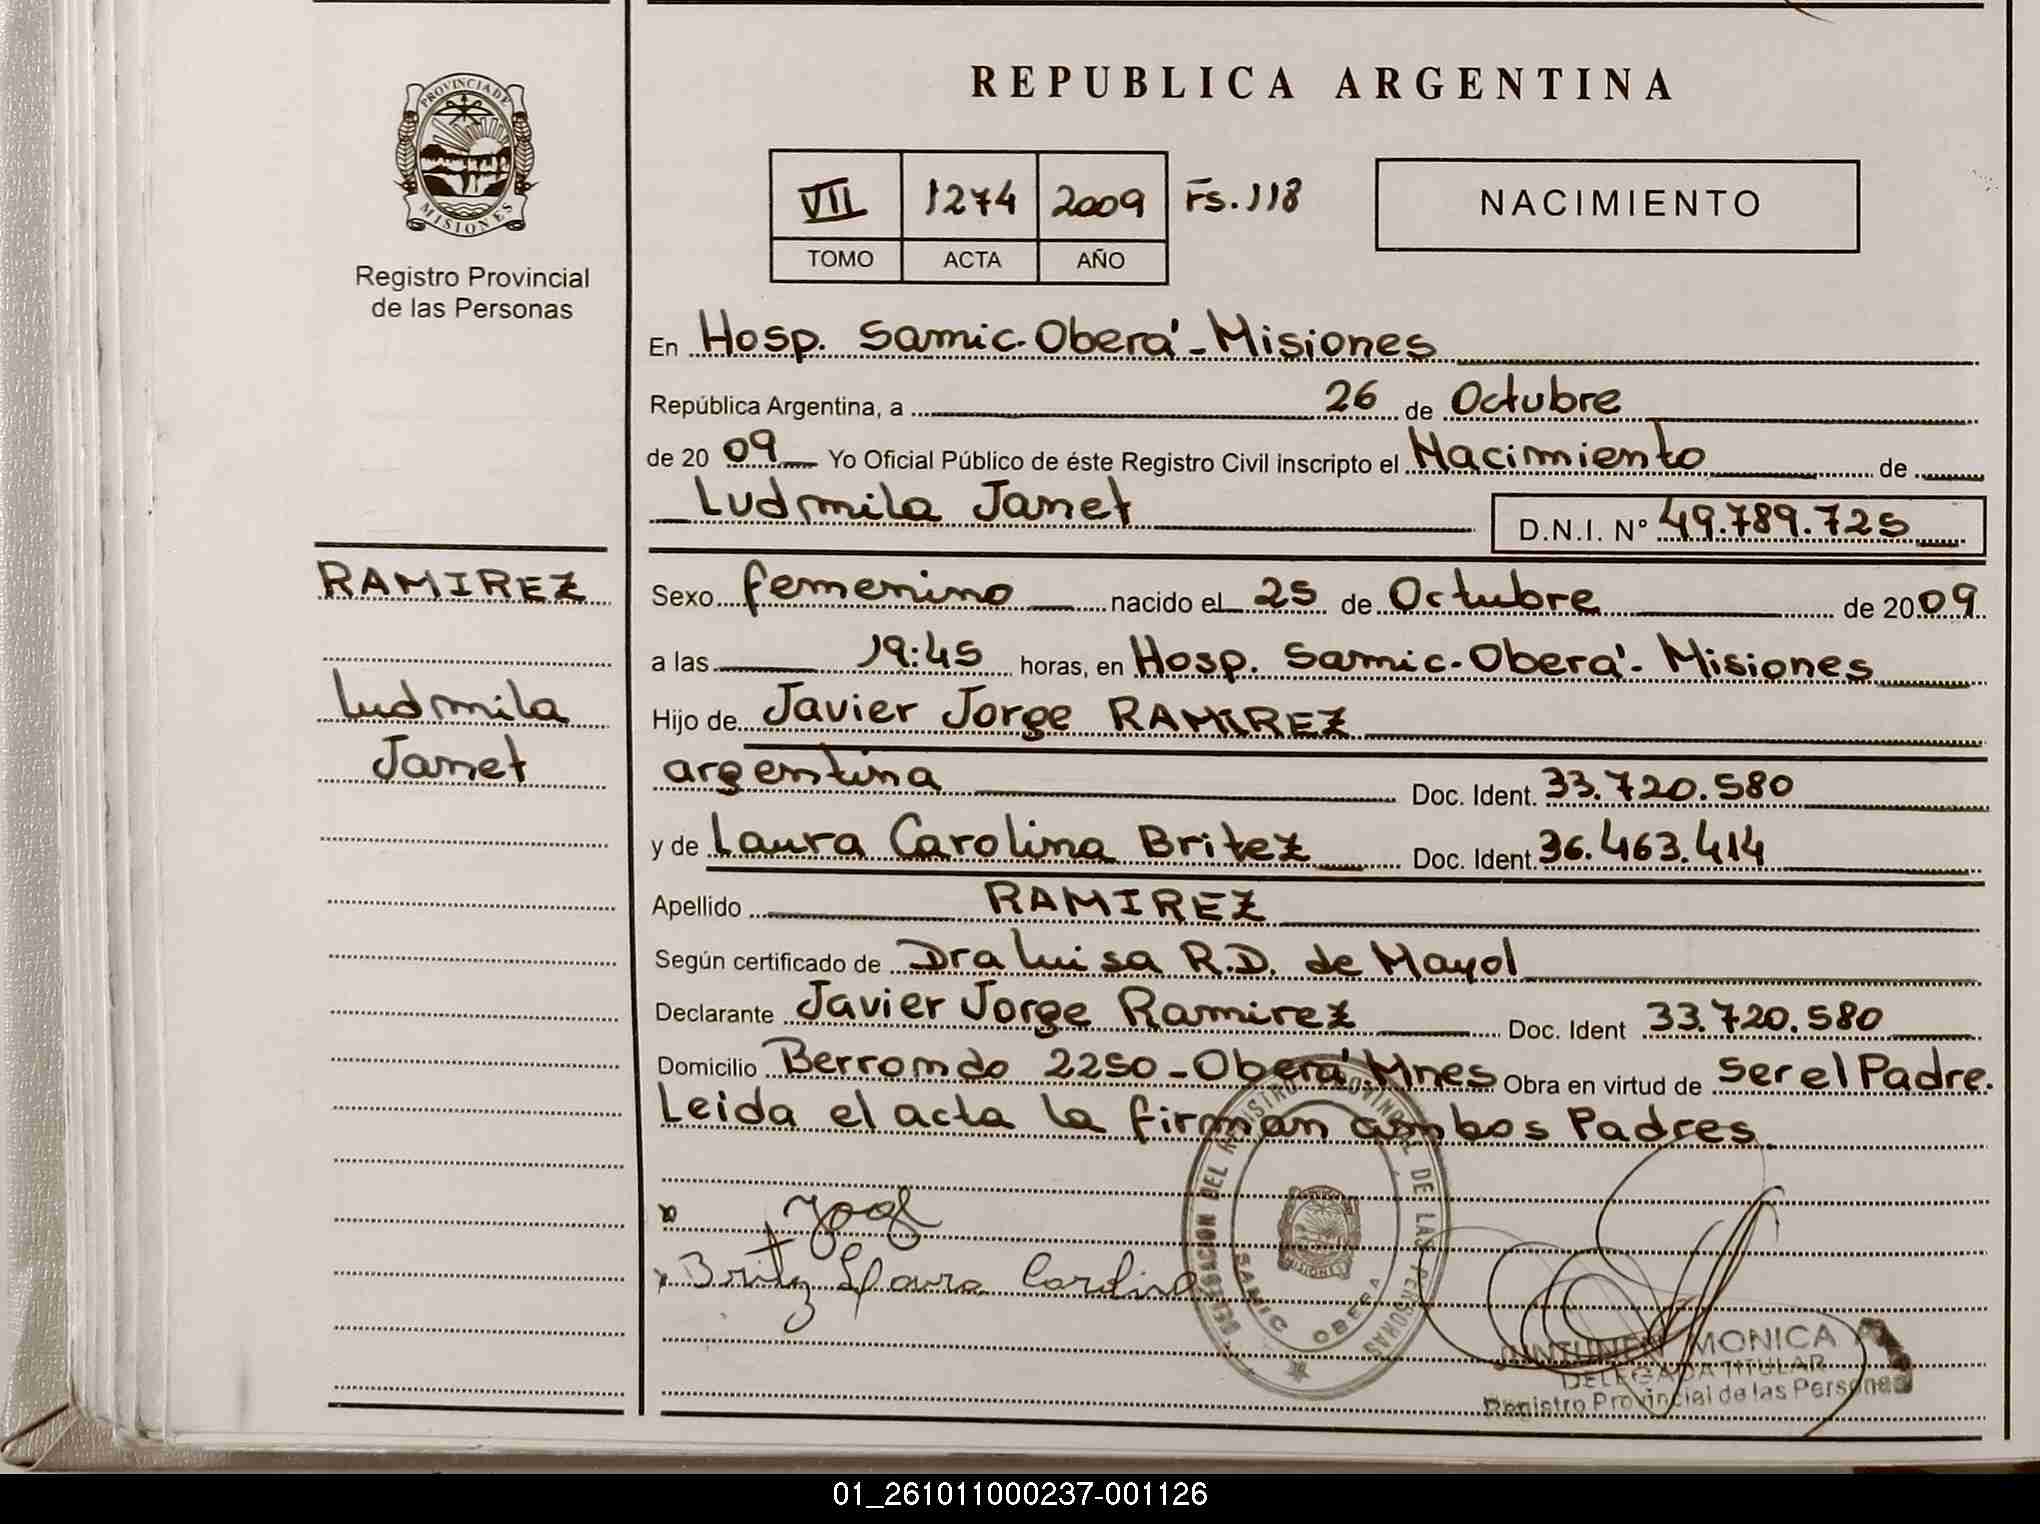 PROVINCIA DE
MISIONES
Registro Provincial
de las Personas
REPUBLICA ARGENTINA
VII 1274 2009 Fs. 118
TOMO ACTA AÑO
NACIMIENTO
En Hosp. Samic. Oberá - Misiones
República Argentina, a 26 de Octubre
de 20 09 Yo Oficial Público de éste Registro Civil inscripto el Nacimiento de
Ludmila Janet D.N.I. Nº 49.789.725
RAMIREZ
Ludmila
Janet
Sexo femenino nacido el 25 de Octubre de 20 09
a las 19:45 horas, en Hosp. Samic. Oberá - Misiones
Hijo de Javier Jorge RAMIREZ
argentina Doc. Ident. 33.720.580
y de Laura Carolina Britez Doc. Ident. 36.463.414
Apellido RAMIREZ
Según certificado de Dra Luisa R.D. de Mayol
Declarante Javier Jorge Ramirez Doc. Ident 33.720.580
Domicilio Berrondo 2250 - Oberá Mnes Obra en virtud de Ser el Padre.
Leida el acta la firman ambos Padres
Britez Laura Carolina
DELEGACION DEL REGISTRO PROVINCIAL DE LAS PERSONAS
SAMIC OBERA
MISIONES
MONICA
DELEGADA TITULAR
Registro Provincial de las Personas
01_261011000237-001126